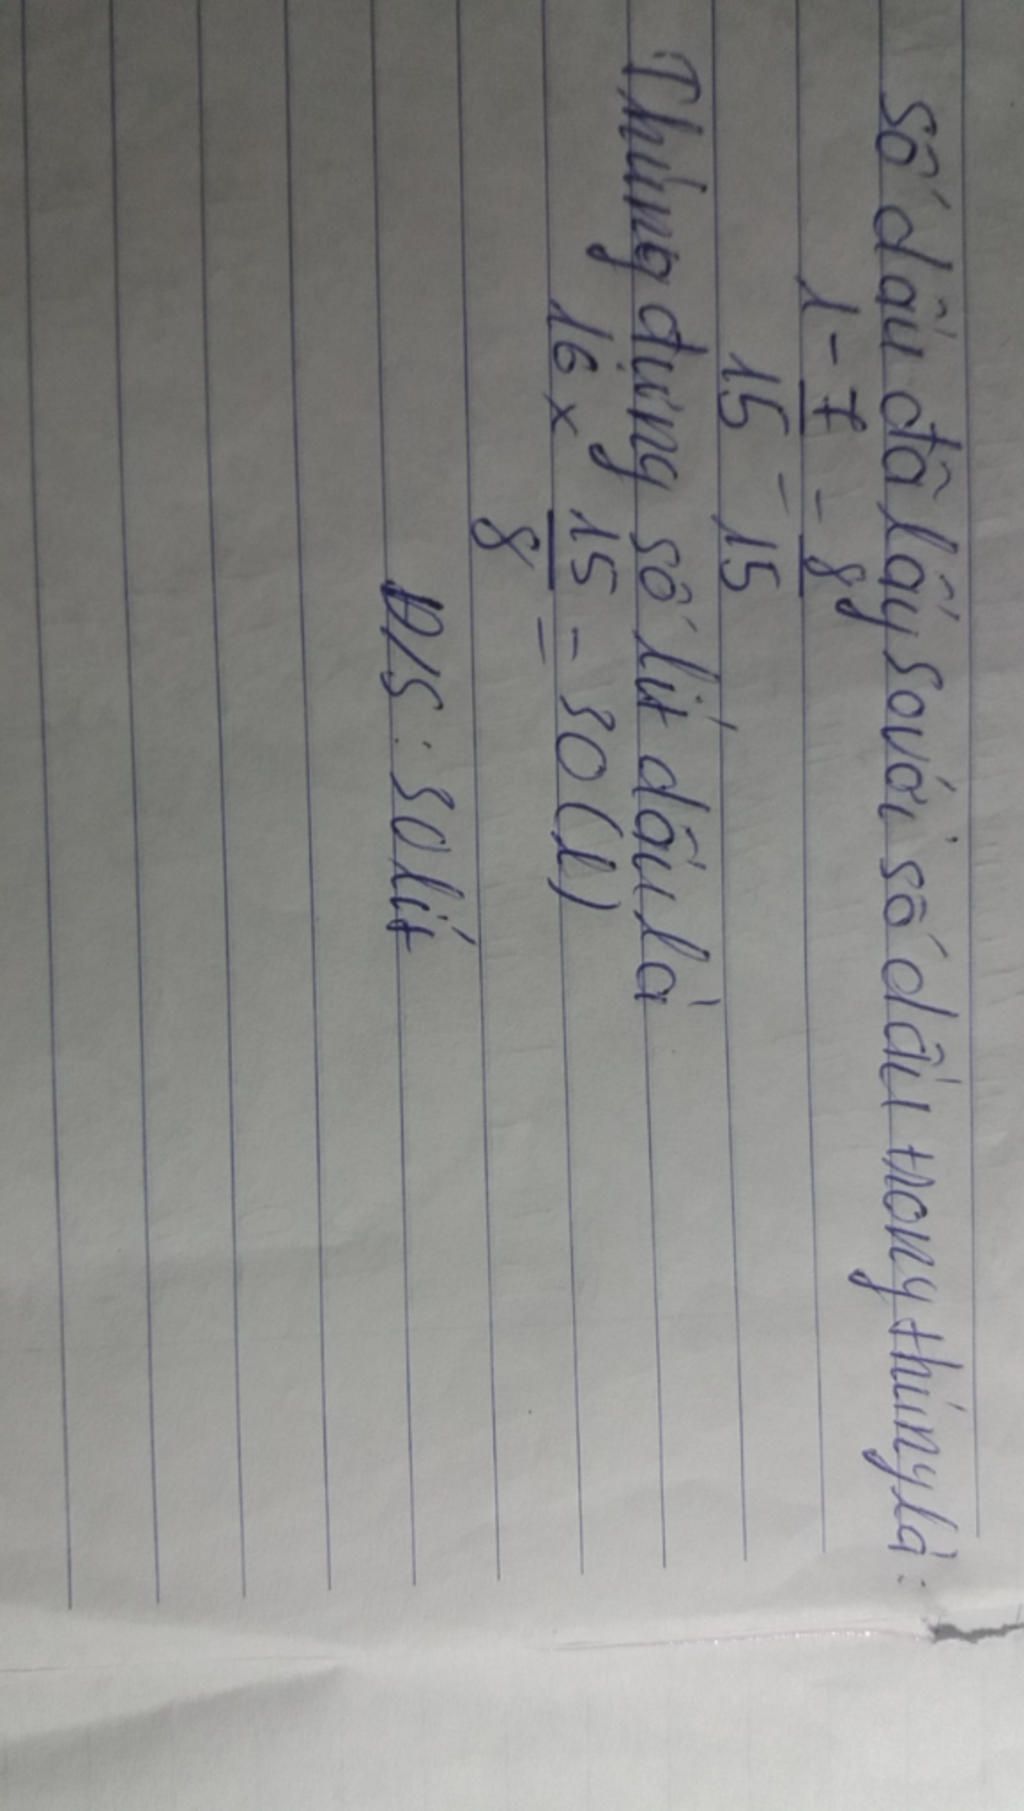 Số dầu đã lấy so với số dầu trong thùng là:
1 - 7/15 = 8/15
Thùng đựng số lít dầu là
16 x 15/8 = 30 (l)
Đ/S: 30 lít